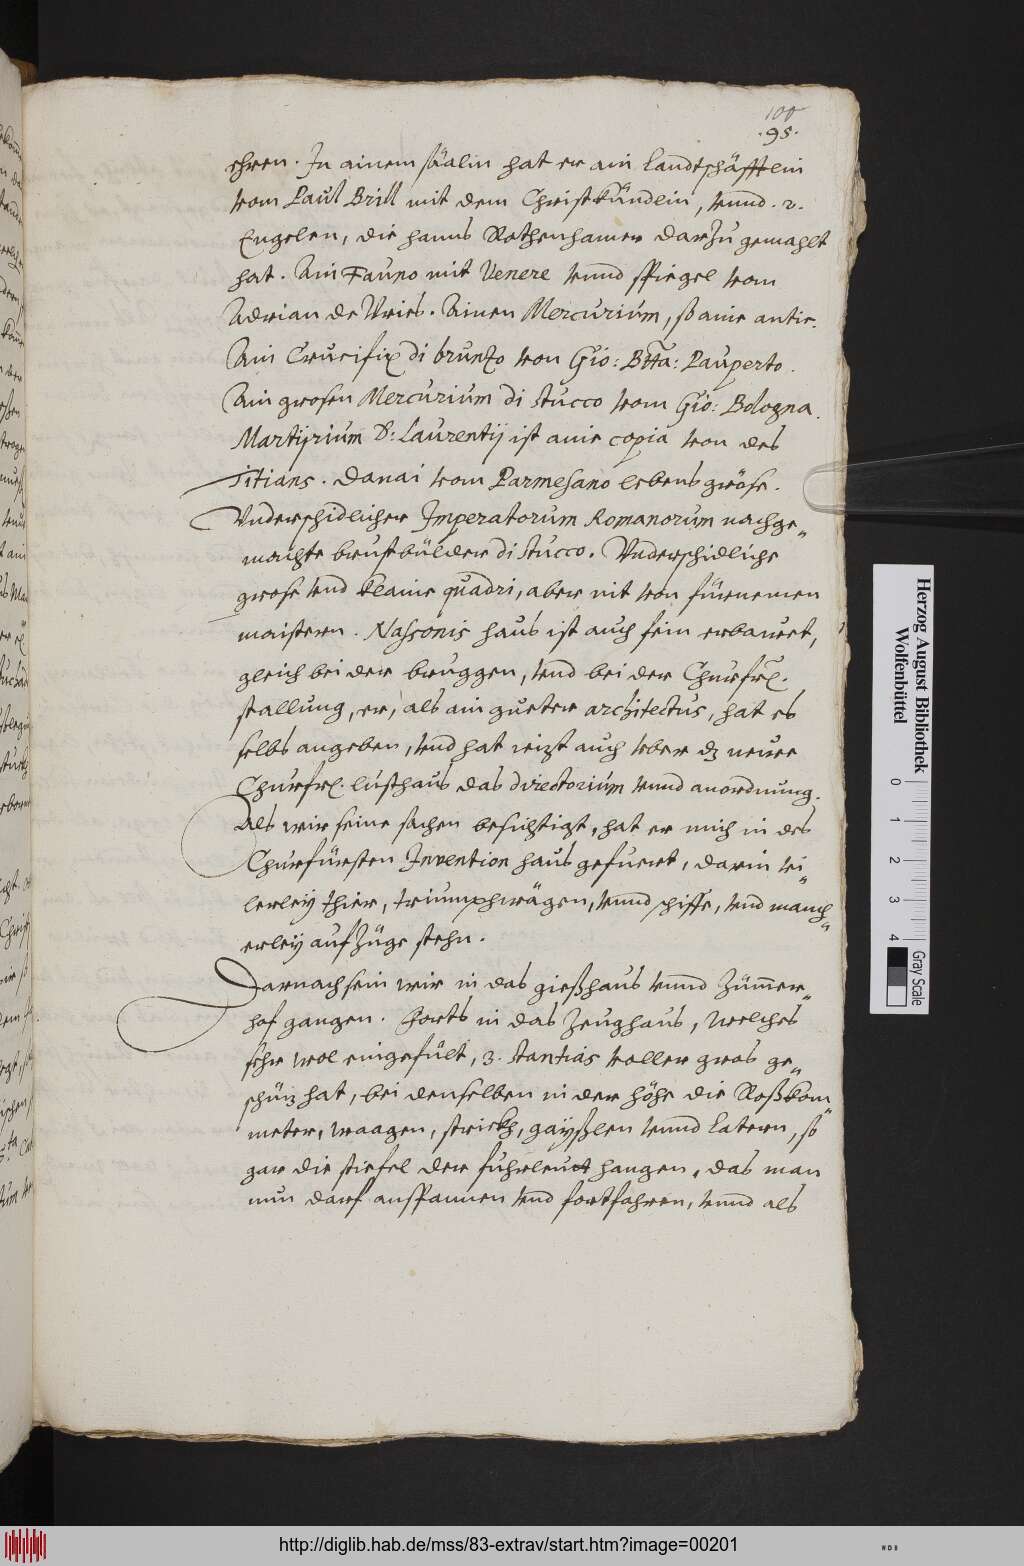 100
.95.
ehren. In ainem säälin hat er ain Landtschäfftlein
vom Paul Brill mit dem Christkündlein, vnnd. 2.
Engelen, die hanns Rothenhamer darzu gemahlt
hat. Ain Fauno mit Venere vnnd spiegel vom
Adrian de Vries. Ainen Mercurium, so ain antic.
Ain Crucifix di brunzo von Gio: Btta: Pauperto.
Ain grosen Mercurium di stucco vom Gio: Bologna.
Martyrium S: Laurentij ist ain copia von des
Titians. Danai vom Parmesano lebens gröse.
Vnderschidlicher Imperatorum Romanorum nachge„
machte brustbülder di stucco. Vnderschidliche
grose vnd klaine quadri, aber nit von fürnemen
maistern. Nassonis haus ist auch fein erbauet,
gleich bei der bruggen, vnd bei der Churfrl.
stallung, er, als ain gueter architectus, hat es
selbs angeben, vnd hat iezt auch vber dz neuee
Churfrl. lusthaus das directorium vnnd anordnung.
Als wir seine sachen besichtigt, hat er mich in des
Churfürsten Invention haus gefuert, darin vi„
lerleÿ thier, triumphwägen, vnnd schiffe, vnd manch„
erleÿ aufzüge stehn.
Darnach sein wir in das gießhaus vnnd Zümmer„
hof gangen. Forts in das Zeughaus, welches
sehr wol eingefült, 3. stantias voller gros ge„
schüz hat, bei denselben in der höhe die Roßkom„
meter, waagen, strickh, gayßlen vnnd Latern, so
gar die stiefel der fuhrleut hangen, das man
nun darf anspannen vnd fortfahren, vnnd als
Herzog August Bibliothek
Wolfenbüttel
0 1 2 3 4
Gray Scale
http://diglib.hab.de/mss/83-extrav/start.htm?image=00201
WDB